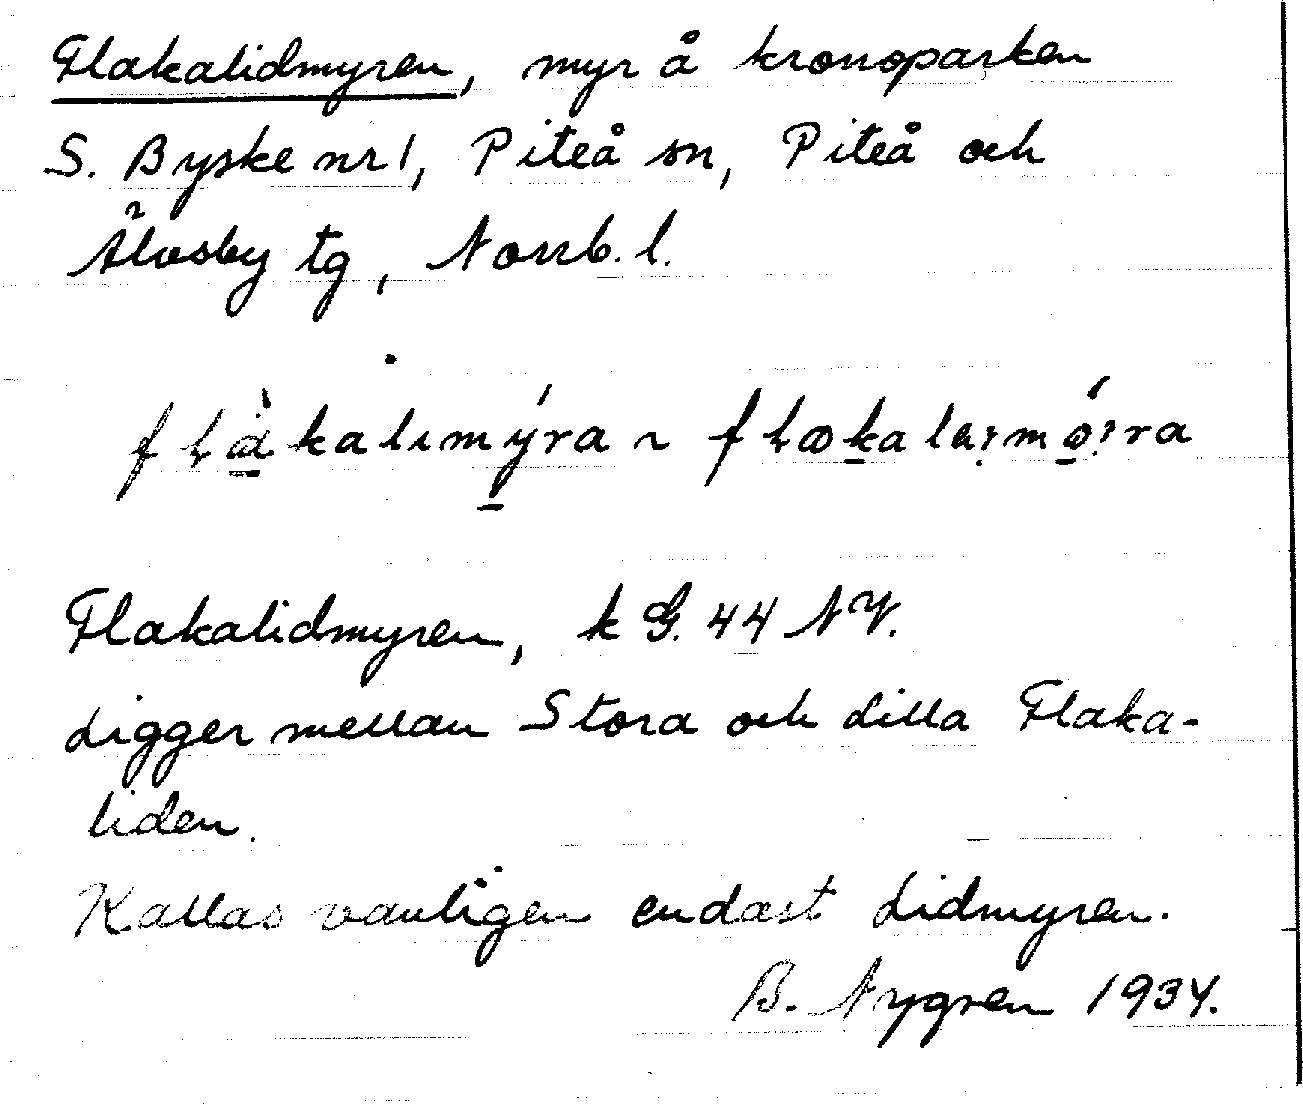 Flakalidmyren, myr å kronoparken
S. Byske nr 1, Piteå sn, Piteå och
Älvsby tg, Norrb. l.
flàkalımýra ~ flækalaımǿıra
Flakalidmyren, k G. 44 NV.
Ligger mellan Stora och Lilla Flaka-
liden.
Kallas vanligen endast Lidmyren.
B. Nygren 1934.